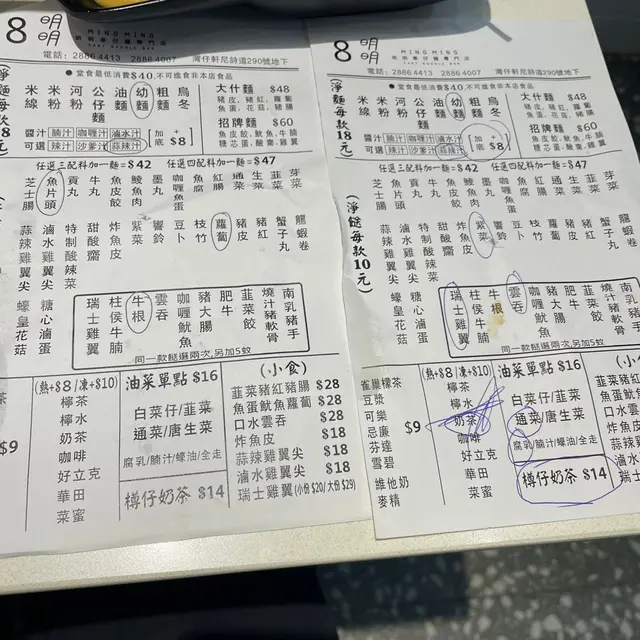 8 明明
MING MING
明明車仔麵專門店
CART NOODLE BAR
電話：2886 4413 2886 4007 灣仔軒尼詩道290號地下
●堂食最低消費$40,不可進食非本店食品
米線 米粉 河粉 公仔麵 油麵 幼麵 粗麵 烏冬
大什麵 $48
豬皮, 豬紅, 蘿蔔
魚蛋, 花菇, 豬腸
招牌麵 $60
魚皮餃, 魷魚, 牛腩
糖心蛋, 酸齋, 雞翼
醬汁可選 腩汁 咖喱汁 滷水汁
辣汁 沙爹汁 蒜辣汁
加底 +$8
任選三配料加一麵=$42 任選四配料加一麵=$47
芝士腸 魚片頭 貢丸 牛丸 魚皮餃 鯪魚肉 墨丸 咖喱魚蛋 魚腐 紅腸 通菜 生菜 韮菜 芽菜
蒜辣雞翼尖 滷水雞翼尖 特制酸辣菜 甜酸齋 炸魚皮 紫菜 響鈴 豆卜 枝竹 蘿蔔 豬皮 豬紅 蟹子丸 龍蝦卷
蠔皇花菇 糖心滷蛋 瑞士雞翼 柱侯牛腩 牛根 雲吞 咖喱魷魚 豬大腸 肥牛 韮菜餃 燒汁豬軟骨 南乳豬手
同一款餸選兩次,另加5蚊
$9
(熱+$8 /凍+$10)
檸茶
檸水
奶茶
咖啡
好立克
華田
菜蜜
油菜單點 $16
白菜仔/韮菜
通菜/唐生菜
腐乳/腩汁/蠔油/全走
樽仔奶茶 $14
(小食)
韮菜豬紅豬腸 $28
魚蛋魷魚蘿蔔 $28
口水雲吞 $28
炸魚皮 $18
蒜辣雞翼尖 $18
滷水雞翼尖 $18
瑞士雞翼(小份$20/大份$29)
8 明明
MING MING
明明車仔麵專門店
CART NOODLE BAR
電話：2886 4413 2886 4007 灣仔軒尼詩道290號地下
●堂食最低消費$40,不可進食非本店食品
(淨麵每款18元)
米線 米粉 河粉 公仔麵 油麵 幼麵 粗麵 烏冬
大什麵 $48
豬皮, 豬紅, 蘿蔔
魚蛋, 花菇, 豬腸
招牌麵 $60
魚皮餃, 魷魚, 牛腩
糖心蛋, 酸齋, 雞翼
醬汁可選 腩汁 咖喱汁 滷水汁
辣汁 沙爹汁 蒜辣汁
加底 +$8
任選三配料加一麵=$42 任選四配料加一麵=$47
(淨餸每款10元)
芝士腸 魚片頭 貢丸 牛丸 魚皮餃 鯪魚肉 墨丸 咖喱魚蛋 魚腐 紅腸 通菜 生菜 韮菜 芽菜
蒜辣雞翼尖 滷水雞翼尖 特制酸辣菜 甜酸齋 炸魚皮 紫菜 響鈴 豆卜 枝竹 蘿蔔 豬皮 豬紅 蟹子丸 龍蝦卷
蠔皇花菇 糖心滷蛋 瑞士雞翼 柱侯牛腩 牛根 雲吞 咖喱魷魚 豬大腸 肥牛 韮菜餃 燒汁豬軟骨 南乳豬手
同一款餸選兩次,另加5蚊
雀巢檸茶
豆漿
可樂
忌廉
芬達
雪碧
維他奶
麥精
$9
(熱+$8 /凍+$10)
檸茶
檸水
奶茶
咖啡
好立克
華田
菜蜜
油菜單點 $16
白菜仔/韮菜
通菜/唐生菜
腐乳/腩汁/蠔油/全走
樽仔奶茶 $14
(小食)
韮菜豬紅豬腸
魚蛋魷魚蘿蔔
口水雲吞
炸魚皮
蒜辣雞翼尖
滷水雞翼尖
瑞士雞翼